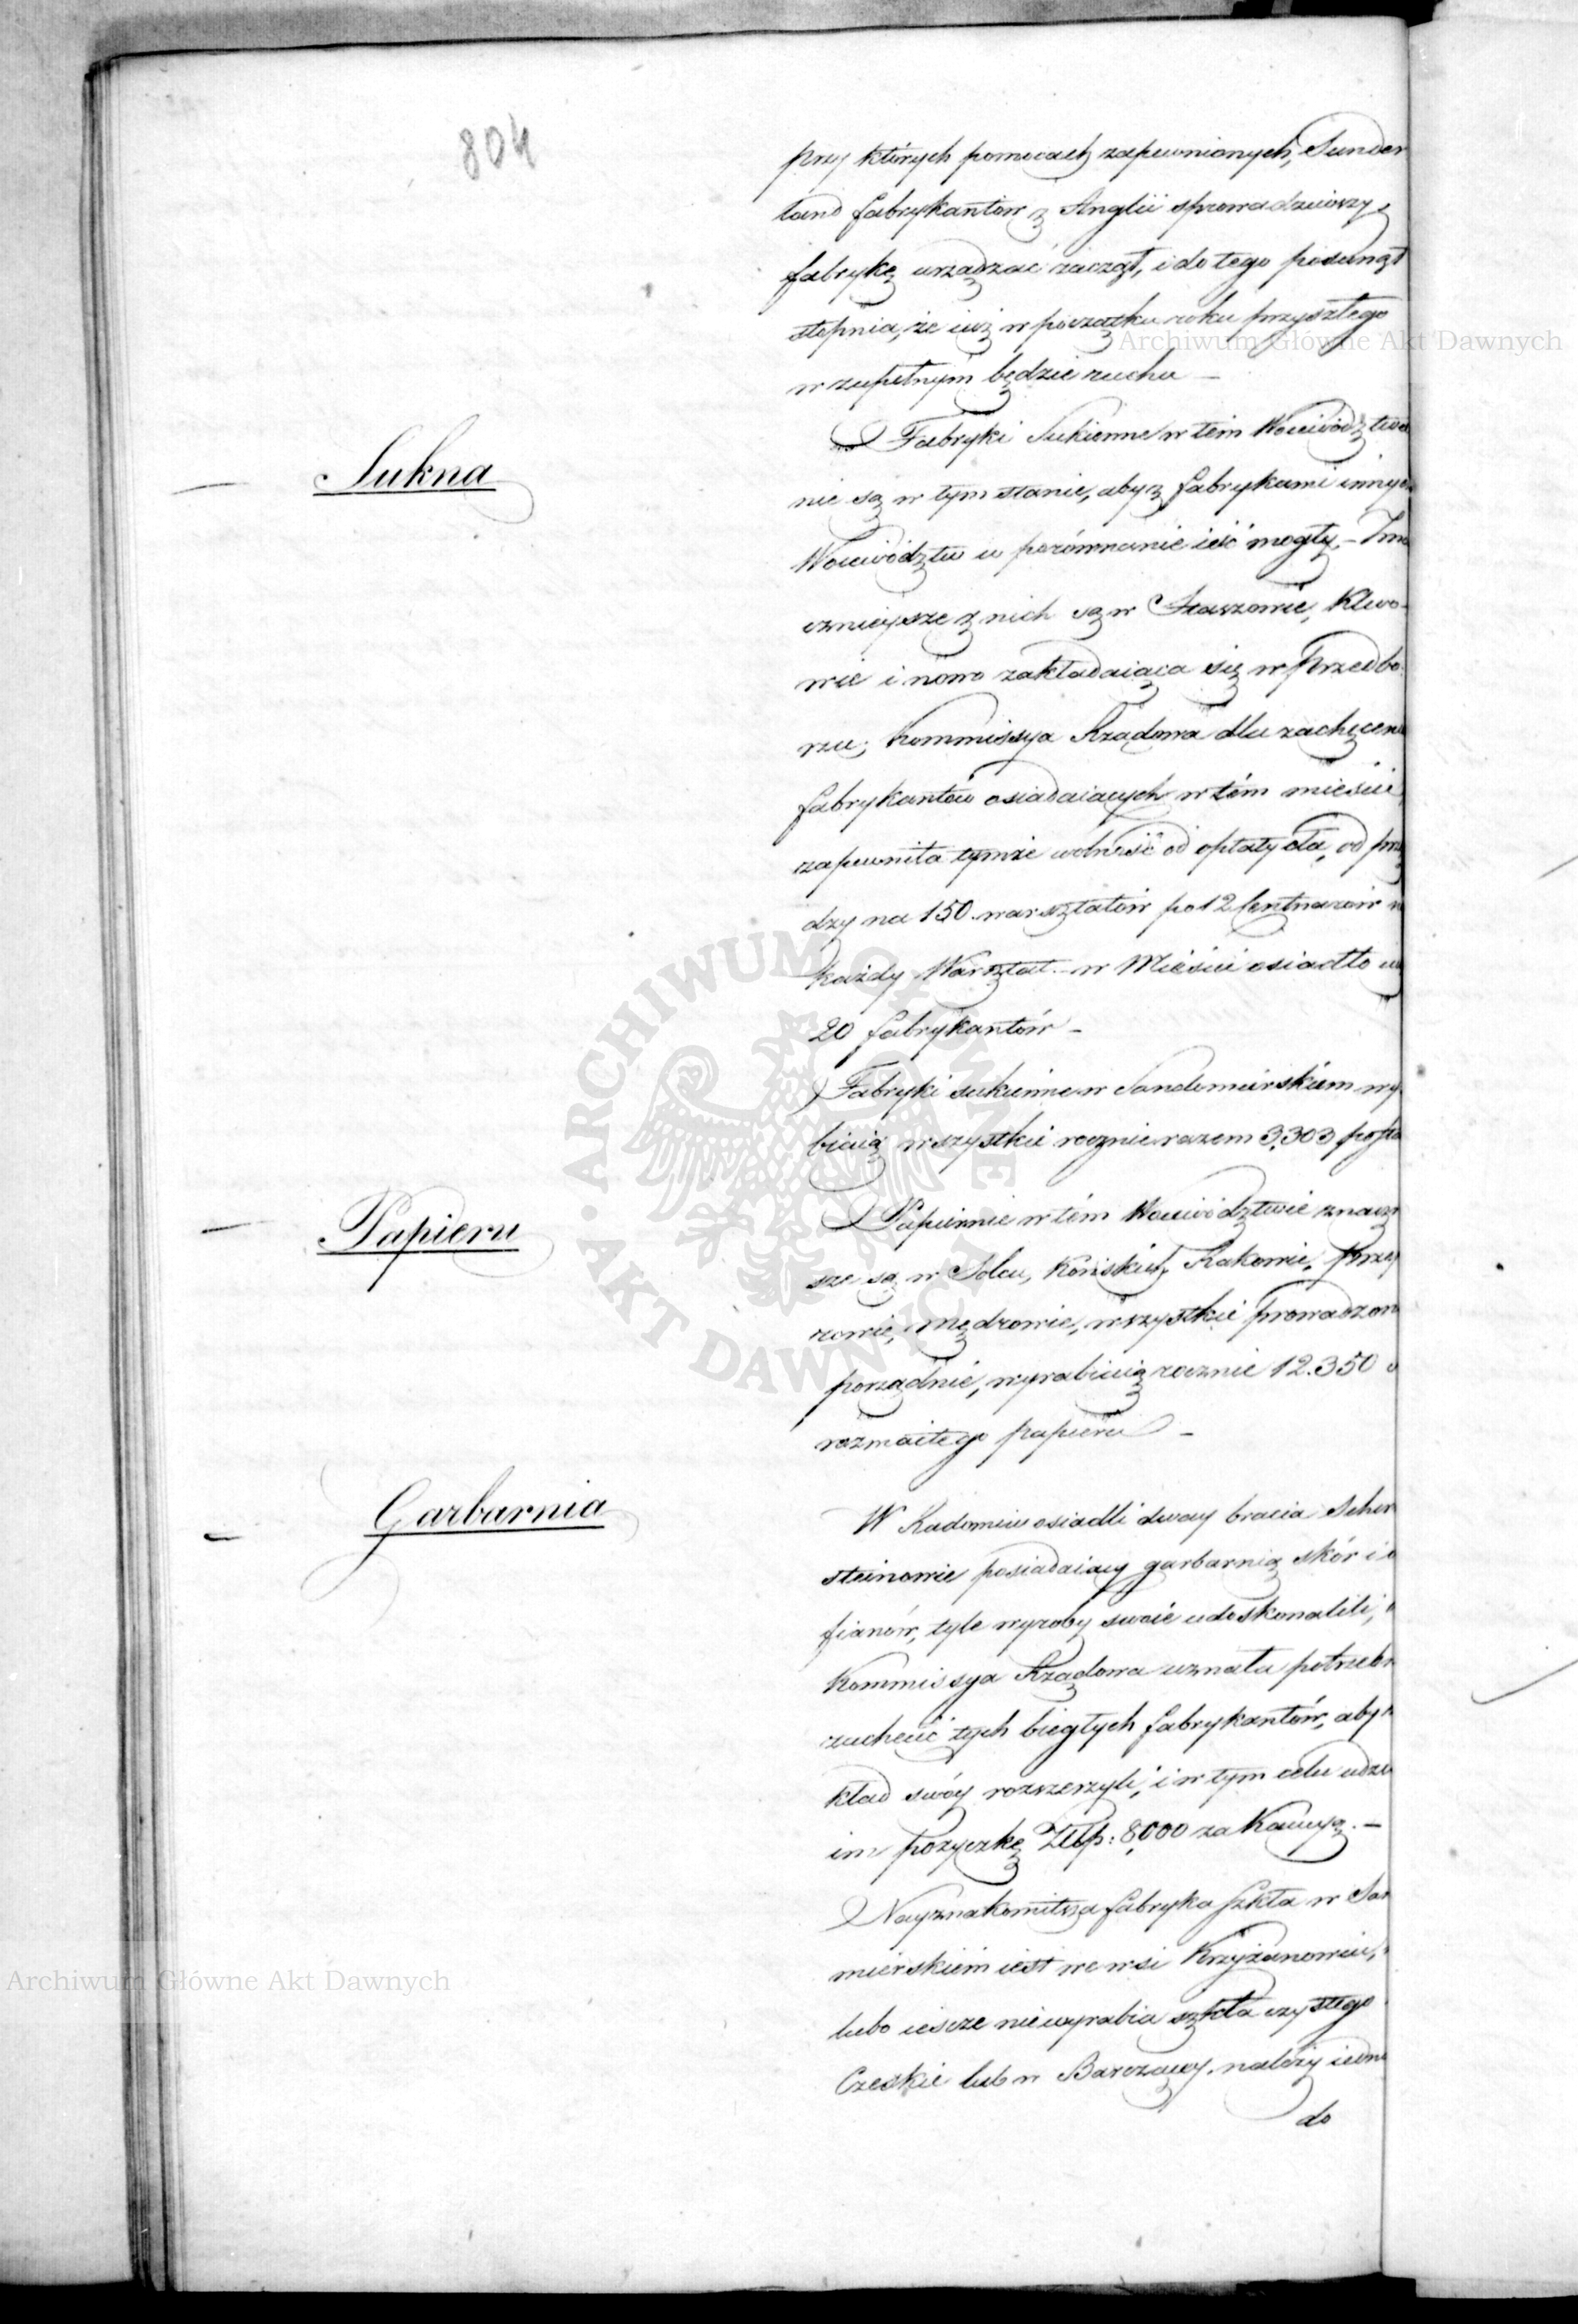 804
przy których pomocach zapewnionych, Sunder
land fabrykantów z Anglii sprowadziwszy,
fabrykę urządzać zaczął, i do tego posunął
stopnia, że iuż w początku roku przyszłego
w zupełnym będzie ruchu —
Sukna
Fabryki Sukienne w tém Woiewództwie
nie są w tym stanie, aby z fabrykami innych
Woiewództw w porównanie iść mogły. — Zna
cznieysze z nich są w Staszowie, Klwo-
wie i nowo zakładaiąca się w Przedbo-
rzu; Kommissya Rządowa dla zachęcenia
fabrykantów osiadaiących w tém mieście
zapewniła tymże wolność od opłaty cła, od przę
dzy na 150. warsztatów po 12 Centnarów n
każdy Warsztat. — w Mieście osiadło iuż
20 fabrykantów —
Fabryki sukienne w Sandomirskiem wy-
biaią wszystkie rocznie razem 3,303 posta
Papieru
Papiernie w tém Woiewództwie znaczn
sze są w Solcu, Końskich, Rakowie, Przy
rowie, Mędrowie, wszystkie prowadzone
porządnie, wyrabiaią rocznie 12.350
rozmaitego papieru —
Garbarnia
W Radomiu osiadli dway bracia Scher
steinowie posiadaiący garbarnią skór i
fianów, tyle wyroby swoie udoskonalili,
Kommissya Rządowa uznała potrzebn
zachęcić tych biegłych fabrykantów, aby
kład swóy rozszerzyli, i w tym celu udzie
im pożyczkę Złłp: 8,000 za Kaucyą. —
Nayznakomitsza fabryka szkła w San
mierskiém iest we wsi Krzyżanowie,
lubo iescze nie wyrabia szkła czystego
Czeskie lub w Barczący, należy iedna
do
Archiwum Główne Akt Dawnych
Archiwum Główne Akt Dawnych
ARCHIWUM GŁÓWNE AKT DAWNYCH